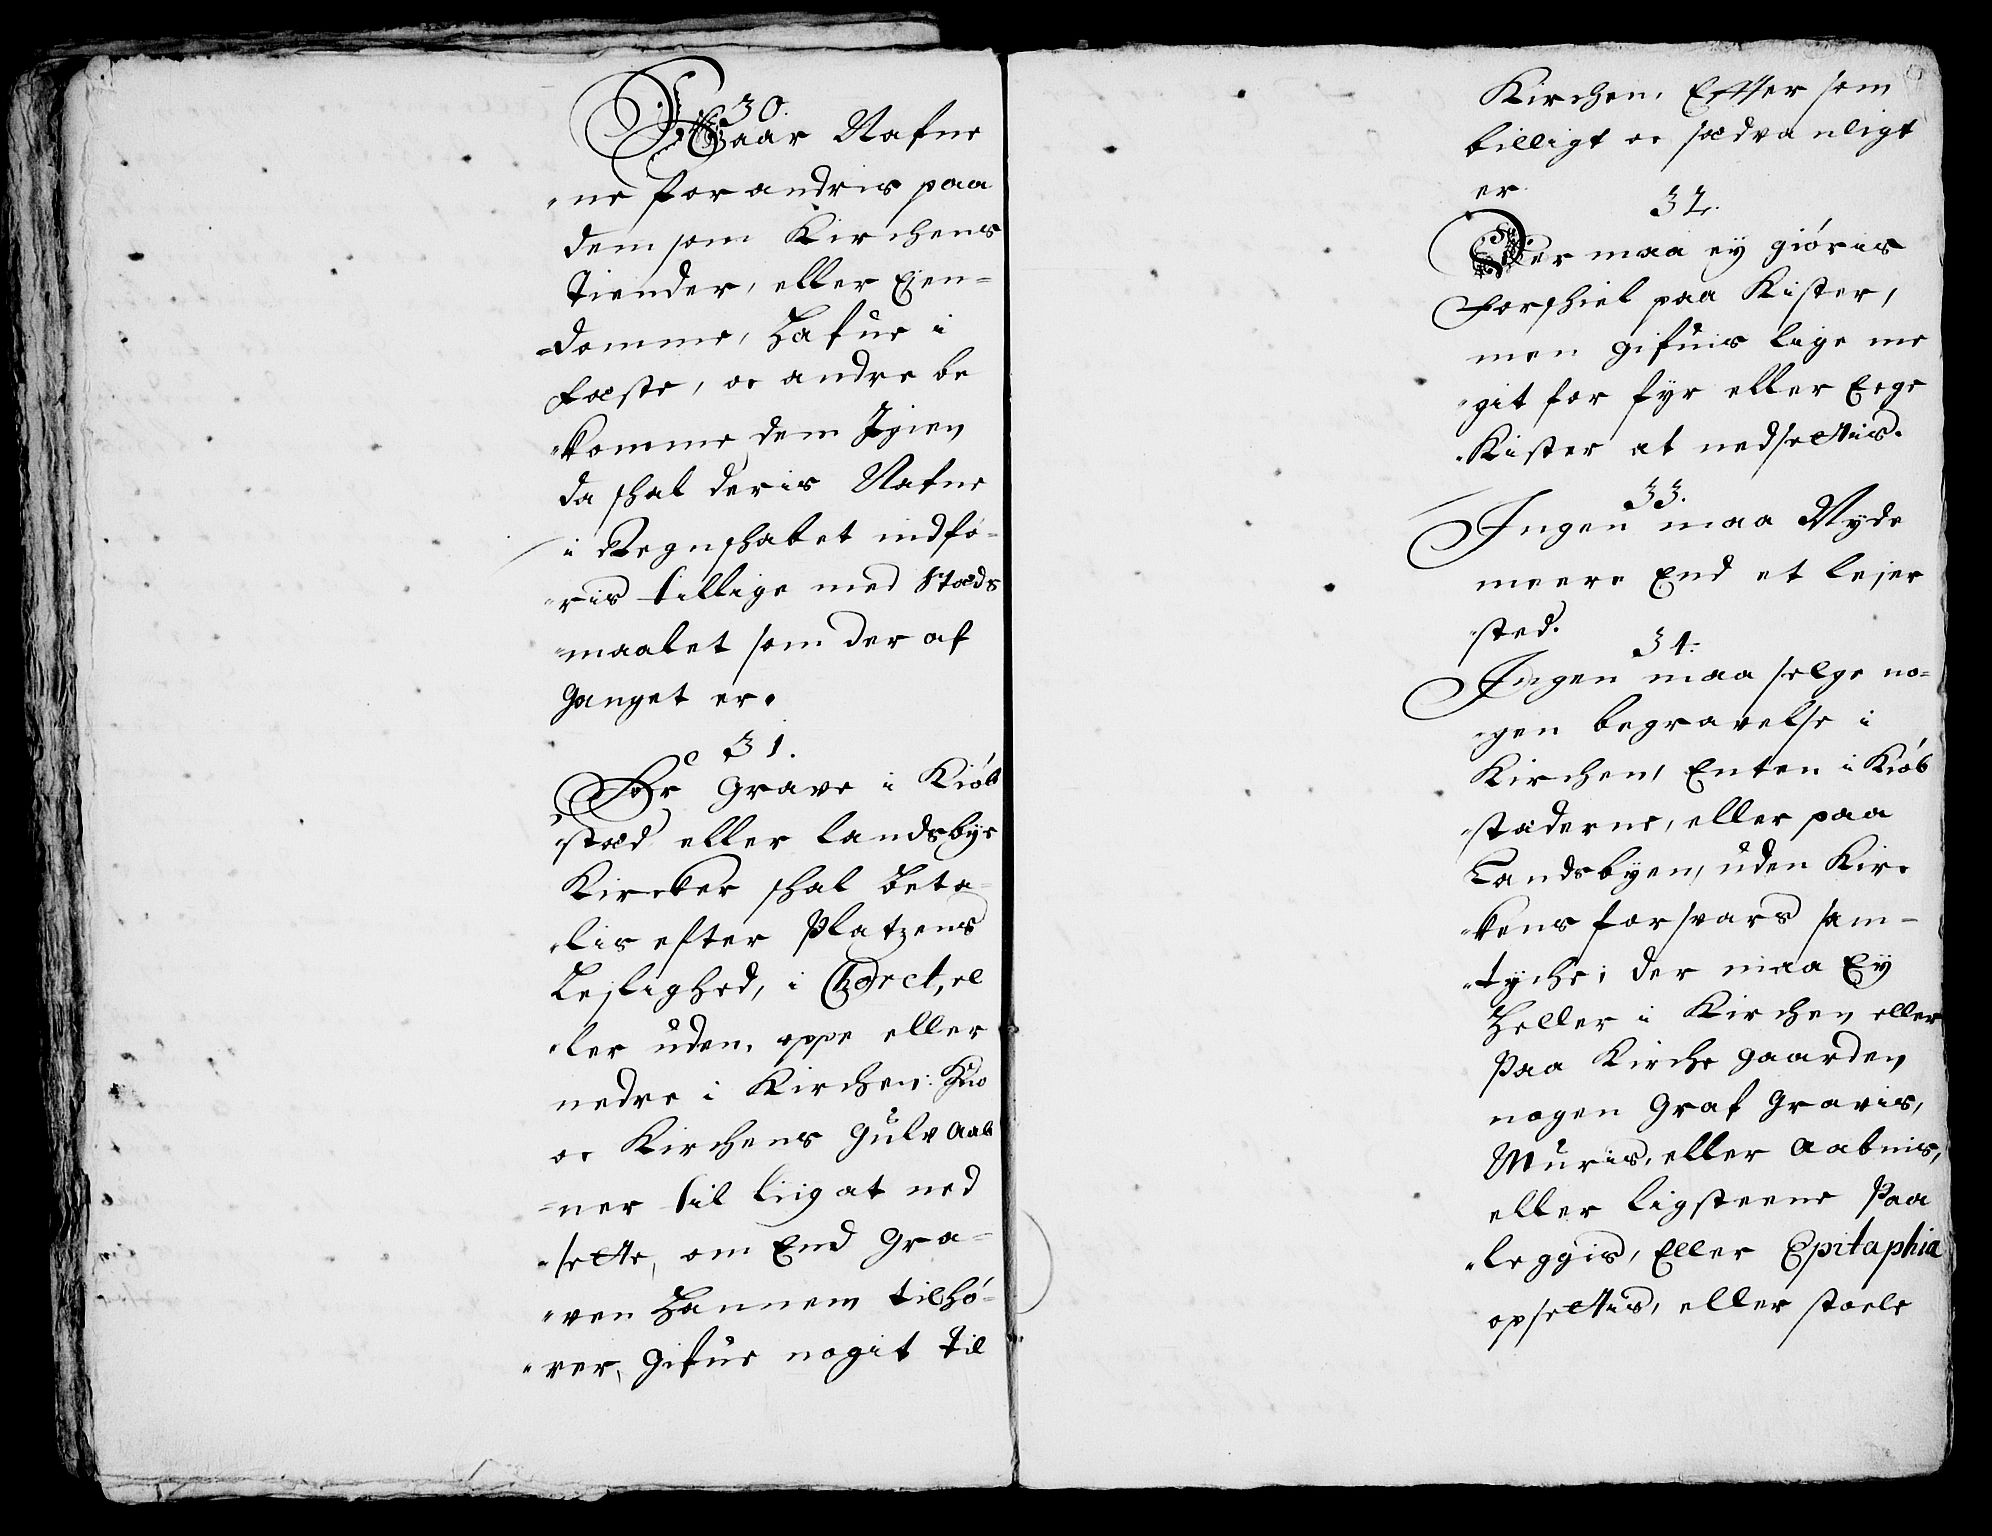 30.
Naar Nafne
ne forandris paa
dem som Kirchens
Tiender, eller Ejen-
domme, hafue i
fæste, oc andre be
komme dem Igien
da shal deris Nafne
i Regnshabet indfø-
ris tillige med Stæds
maalet som der af
ganget er.
31.
For grave i Kiöb
stæd eller landsbye
Kircker shal beta-
lis efter Platzens
Lejlighed, i Choret, el
ler uden, oppe eller
nedre i Kirchen:
oc Kirchens gulv aab
ner til liig at ned
sette, om End gra-
ven hannem tilhö-
rer, gifue nogit til
Kirchen, Effter som
billigt oc sædvanligt
er
32.
Der maa ey giöris
forshiel paa Kister,
men gifuis lige me
git for fyr eller Eege
Kister at nedsettis.
33.
Ingen maa Nyde
meere End et lejer
sted.
34.
Ingen maa selge no-
gen begravelse i
Kirchen, Enten i Kiöb
stæderne, eller paa
Landsbyen, uden Kir-
kens forsvars sam-
tyche; der maa Ey
heller i Kirchen eller
paa Kirche gaarden
nogen Graf gravis,
Muris, eller Aabnis,
eller ligsteene Paa
leggis, Eller Epitaphia
opsettis, eller stoele